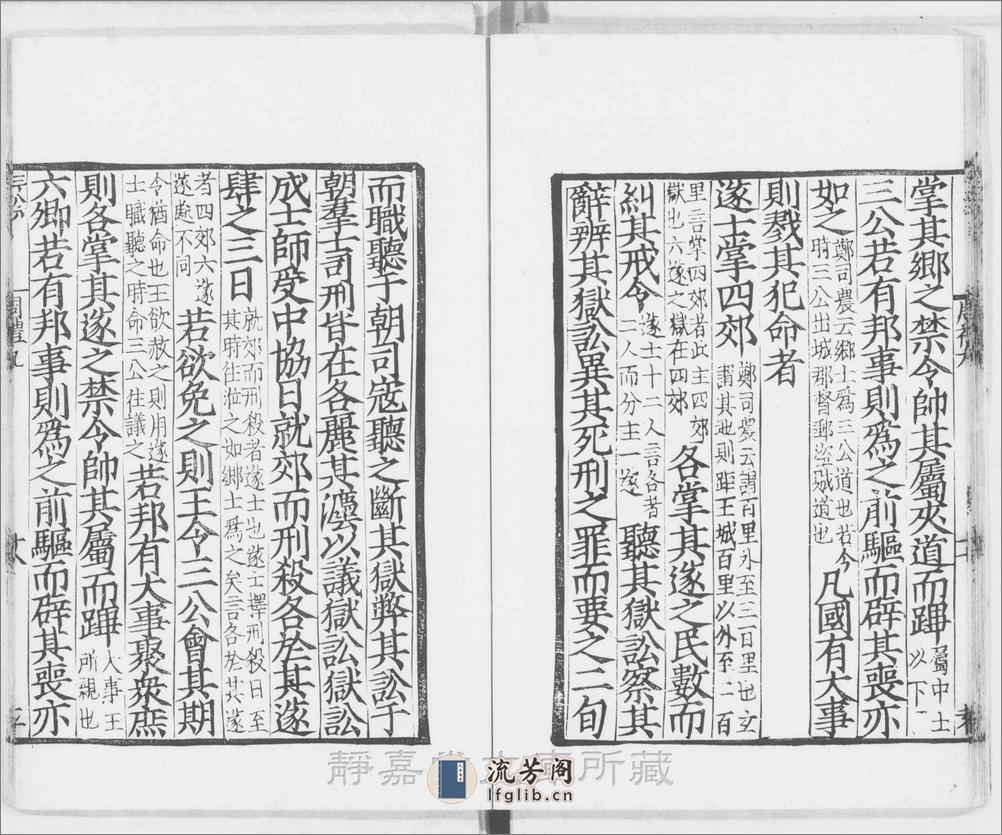 掌其鄉之禁令帥其屬夾道而蹕屬中士以下
三公若有邦事則爲之前驅而辟其喪亦
如之鄭司農云鄉士爲三公道也若今時三公出城郡督郵盜賊道也凡國有大事
則戮其犯命者
遂士掌四郊鄭司農云謂百里外至三百里也玄謂其地則距王城百里以外至二百
里言掌四郊者此主四郊獄也六遂之獄在四郊各掌其遂之民數而
糾其戒令遂士十二人言各者二人而分主一遂聽其獄訟察其
辭辨其獄訟異其死刑之罪而要之二旬
而職聽于朝司寇聽之斷其獄弊其訟于
朝羣士司刑皆在各麗其灋以議獄訟獄訟
成士師受中協日就郊而刑殺各於其遂
肆之三日就郊而刑殺者遂士也遂士擇刑殺日至其時往涖之如鄉士爲之矣言各於其遂
者四郊六遂遂處不同若欲免之則王令三公會其期
令猶命也王欲赦之則用遂士職聽之時命三公往議之若邦有大事聚衆庶
則各掌其遂之禁令帥其屬而蹕大事王所親也
六卿若有邦事則爲之前驅而辟其喪亦
周禮九
十八
靜嘉堂文庫所藏
流芳阁
lfglib.cn